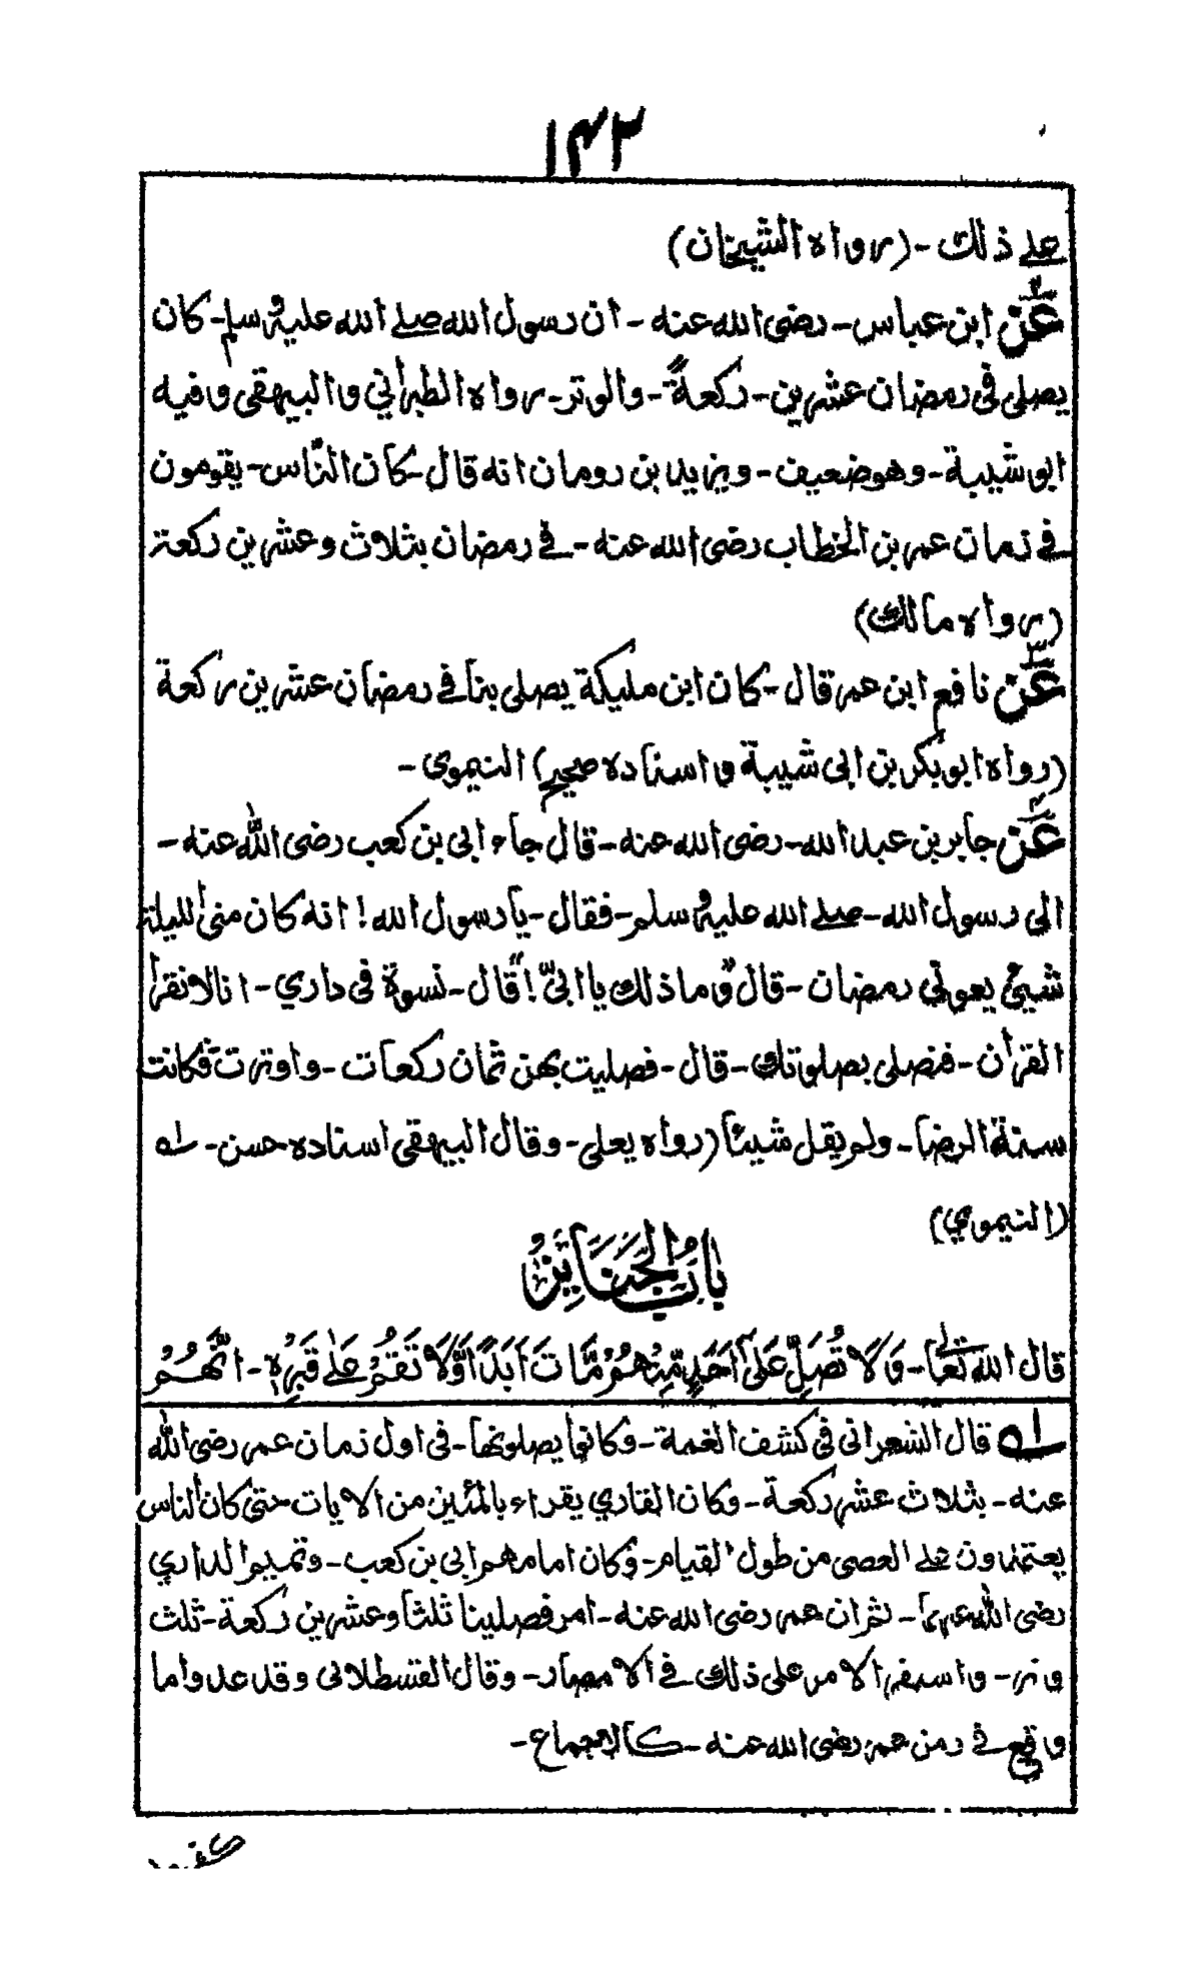 ١٤٢
على ذلك - (رواه الشيخان)
عن ابن عباس - رضى الله عنه - ان رسول الله صلى الله عليه وسلم - كان
يصلى فى رمضان عشرين - ركعةً - والوتر - رواه الطبرانى والبيهقى وفيه
ابو شيبة - وهو ضعيف - ويزيد بن رومان انه قال - كان النّاس - يقومون
فى زمان عمر بن الخطاب رضى الله عنه - فى رمضان بثلاث وعشرين ركعة
(رواه مالك)
عن نافع ابن عمر قال - كان ابن مليكة يصلى بنا فى رمضان عشرين ركعة
(رواه ابوبكر بن ابى شيبة واسناده صحيح) النيموى -
عن جابر بن عبد الله - رضى الله عنه - قال جاء ابى بن كعب رضى الله عنه -
الى رسول الله - صلى الله عليه وسلم - فقال - يا رسول الله! انه كان منى الليلة
شيئ يعونى رمضان - قال وما ذلك يا ابىّ! قال - نسوة فى دارى - انا لا نقرأ
القرأن - فنصلى بصلوتك - قال - فصليت بهن ثمان ركعات - واوترت فكانت
سنة الرضا - ولم يقل شيئا (رواه يعلى - وقال البيهقى اسناده حسن - له
(النيموي)
بَابُ الْجَنَائِزِ
قال الله تعالى - وَلَا تُصَلِّ عَلَىٰ اَحَدٍ مِّنْهُمْ مَّاتَ اَبَدًا وَّلَا تَقُمْ عَلٰى قَبْرِهٖ - اِنَّهُمْ
له قال الشعرانى فى كشف الغمة - وكانوا يصلونها - فى اول زمان عمر رضى الله
عنه - بثلاث عشر ركعة - وكان القاري يقراء بالمئين من الايات حتى كان الناس
يعتمدون على العصى من طول القيام - وكان امامهم ابى بن كعب - وتميم الدارى
رضى الله عنهما - ثم ان عمر رضى الله عنه - امر فصلينا ثلثا وعشرين ركعة - ثلث
وتر - واستقر الامر على ذلك فى الامصار - وقال القسطلانى وقد عدوا ما
وقع فى زمن عمر رضى الله عنه - كالاجماع -